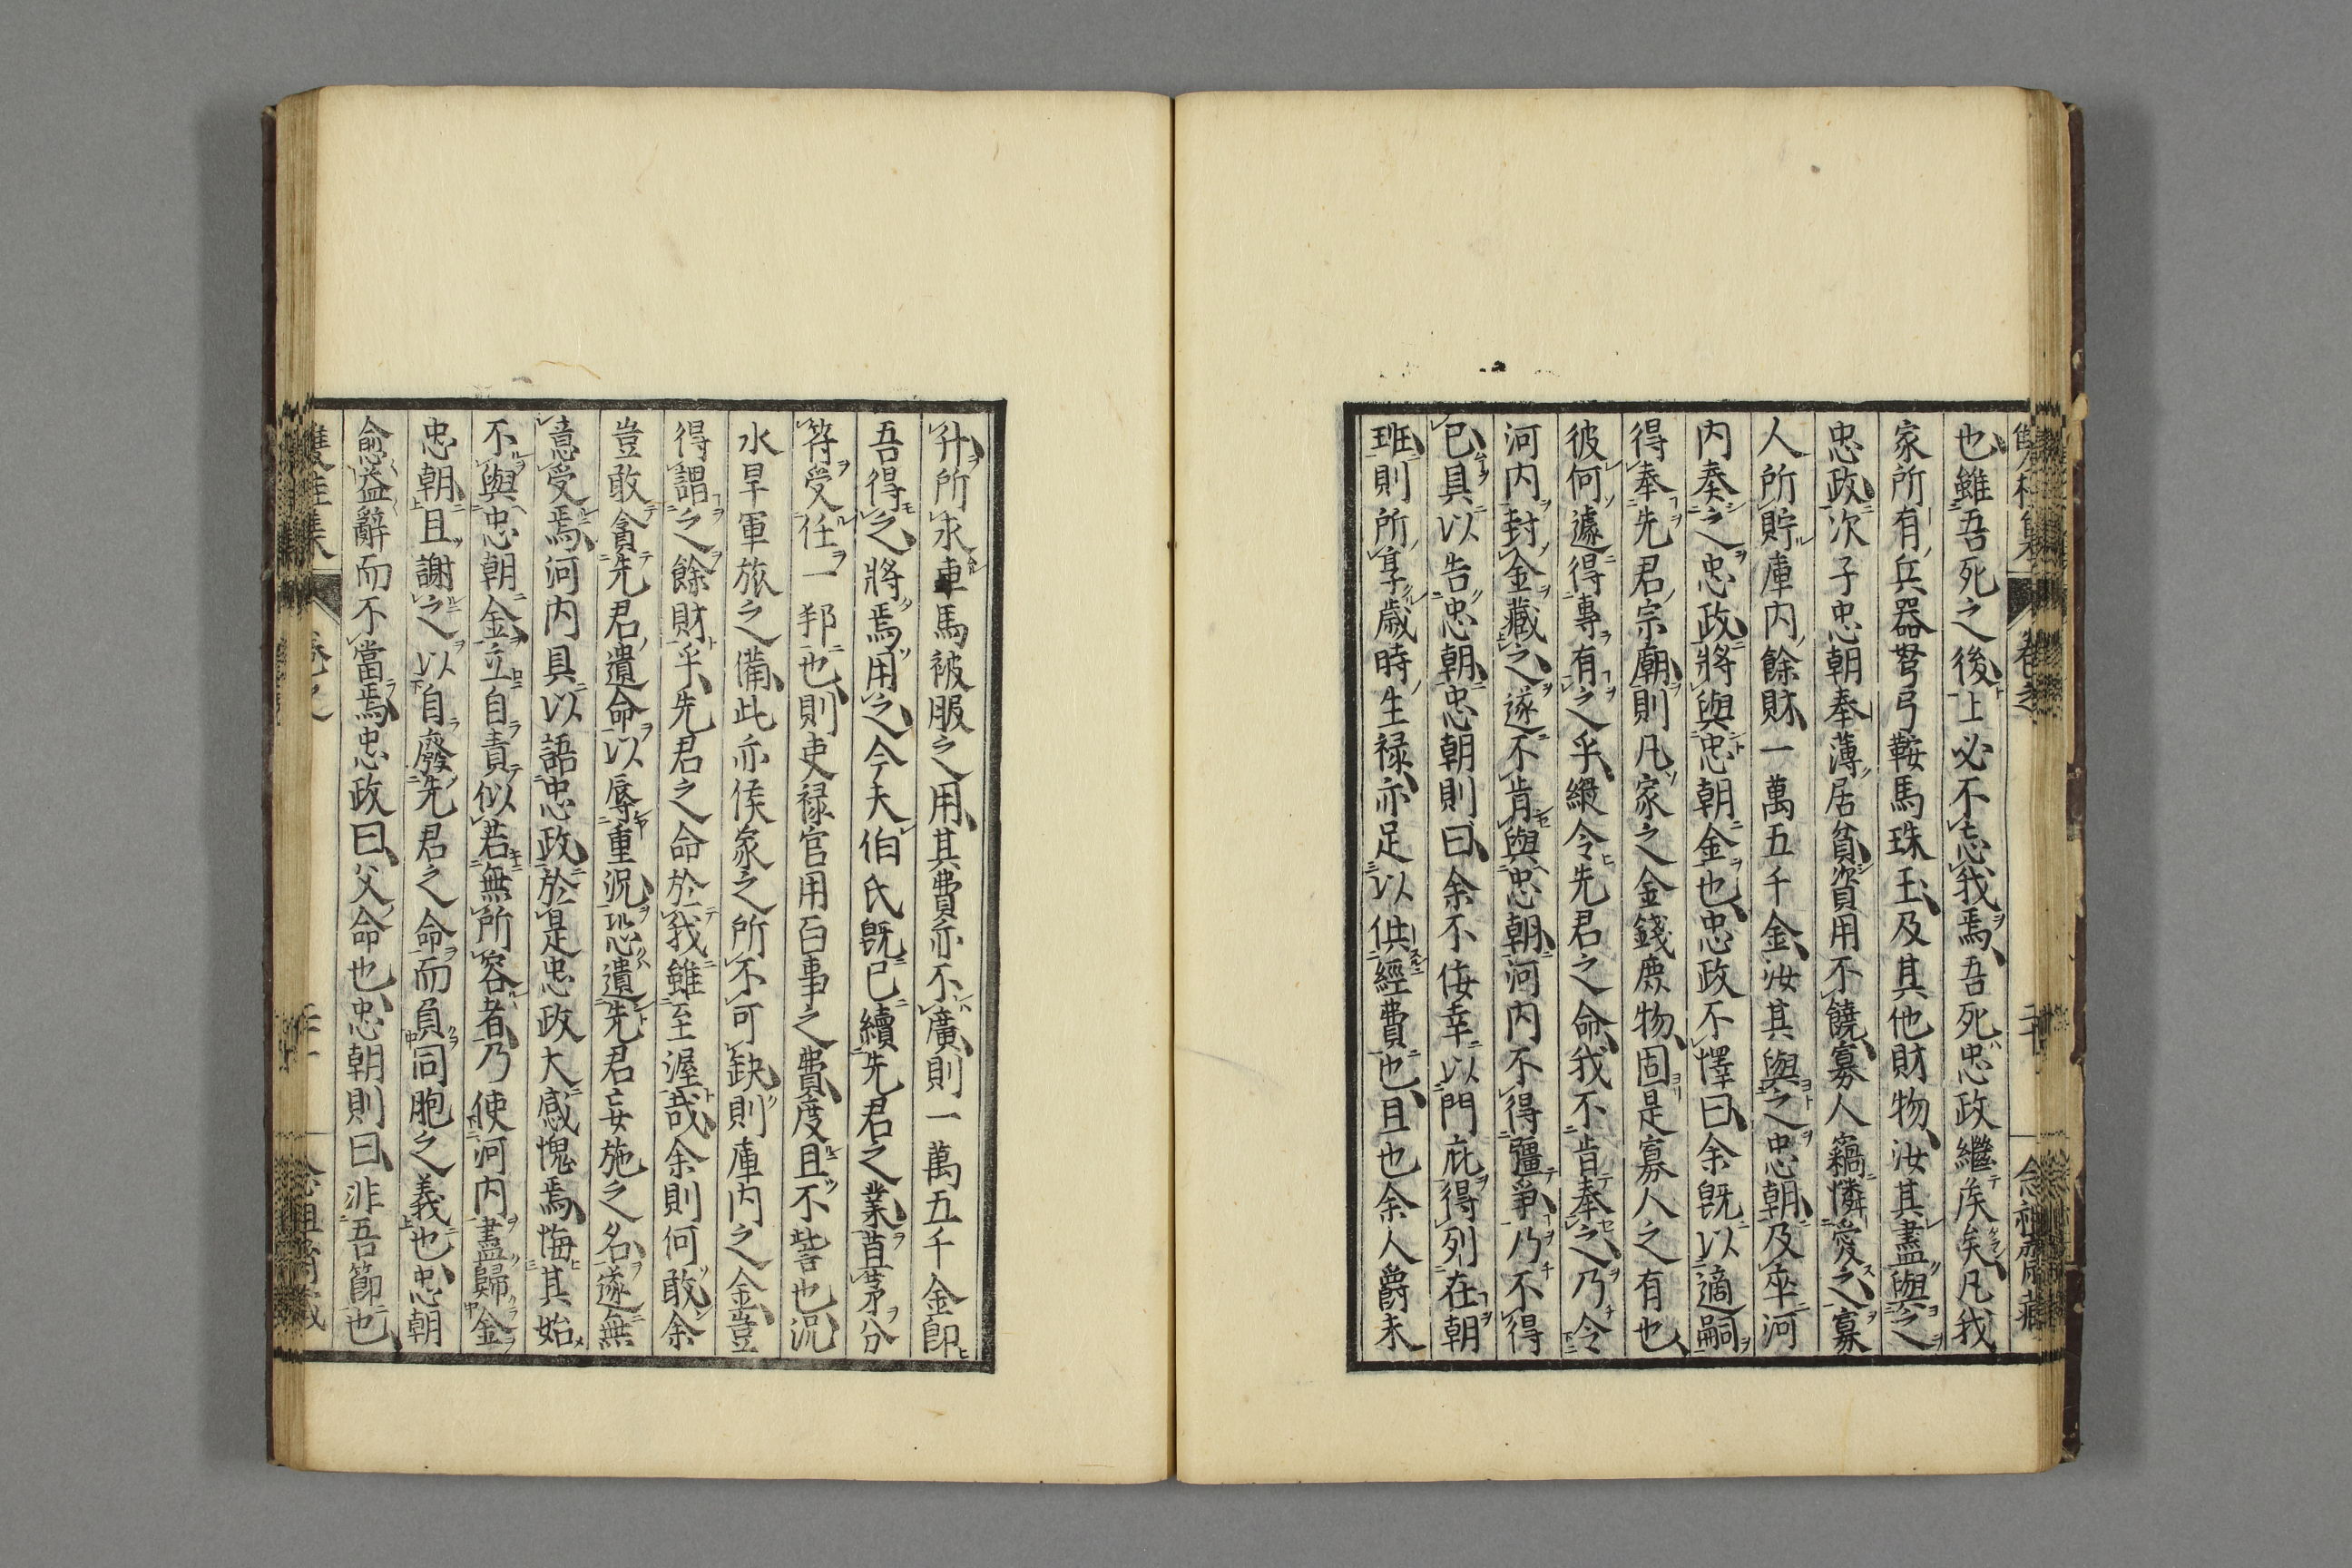 也雖吾死之後上必不忘我焉吾死忠政繼矦矣凡我
家所有兵器弩弓鞍馬珠玉及其他財物汝其盡與之
忠政次子忠朝奉薄居貧資用不饒寡人竊憐愛之寡
人所貯庫内餘財一萬五千金汝其與之忠朝及卒河
内奏之忠政將與忠朝金也忠政不懌曰余既以適嗣
得奉先君宗廟則凡家之金錢庶物固是寡人之有也
彼何遽得專有之乎縱令先君之命我不肯奉之乃令
河内封金藏之遂不肯與忠朝河内不得彊爭乃不得
已具以告忠朝忠朝則曰余不佞幸以門庇得列在朝
班則所享歳時生禄亦足以供經費也且也余人爵未
升所求車馬被服之用其費亦不廣則一萬五千金即
吾得之將焉用之今夫伯氏既已續先君之業苴茅分
符受任一邦也則吏禄官用百事之費度且不訾也況
水旱軍旅之備此亦侯家之所不可缺則庫内之金豈
得謂之餘財乎先君之命於我雖至渥哉余則何敢余
豈敢貪先君遺命以辱重況恐遺先君妄施之名遂無
意受焉河内具以語忠政於是忠政大感愧焉悔其始
不與忠朝金立自責似若無所容者乃使河内盡歸金
忠朝且謝之以自廢先君之命而負同胞之義也忠朝
愈益辭而不當焉忠政曰父命也忠朝則曰非吾節也